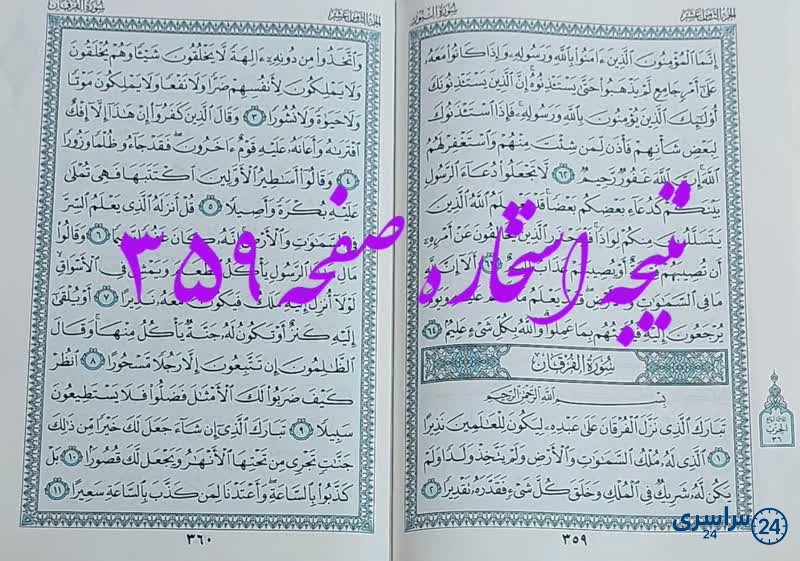 سُورَةُ النُّورِ
الجزء الثامن عشر
إِنَّمَا ٱلْمُؤْمِنُونَ ٱلَّذِينَ ءَامَنُوا۟ بِٱللَّهِ وَرَسُولِهِۦ وَإِذَا كَانُوا۟ مَعَهُۥ
عَلَىٰٓ أَمْرٍ جَامِعٍ لَّمْ يَذْهَبُوا۟ حَتَّىٰ يَسْتَـْٔذِنُوهُ ۚ إِنَّ ٱلَّذِينَ يَسْتَـْٔذِنُونَكَ
أُو۟لَـٰٓئِكَ ٱلَّذِينَ يُؤْمِنُونَ بِٱللَّهِ وَرَسُولِهِۦ ۚ فَإِذَا ٱسْتَـْٔذَنُوكَ
لِبَعْضِ شَأْنِهِمْ فَأْذَن لِّمَن شِئْتَ مِنْهُمْ وَٱسْتَغْفِرْ لَهُمُ
ٱللَّهَ ۚ إِنَّ ٱللَّهَ غَفُورٌ رَّحِيمٌ ٦٢ لَّا تَجْعَلُوا۟ دُعَآءَ ٱلرَّسُولِ
بَيْنَكُمْ كَدُعَآءِ بَعْضِكُم بَعْضًا ۚ قَدْ يَعْلَمُ ٱللَّهُ ٱلَّذِينَ
يَتَسَلَّلُونَ مِنكُمْ لِوَاذًا ۚ فَلْيَحْذَرِ ٱلَّذِينَ يُخَالِفُونَ عَنْ أَمْرِهِۦٓ
أَن تُصِيبَهُمْ فِتْنَةٌ أَوْ يُصِيبَهُمْ عَذَابٌ أَلِيمٌ أَلَآ إِنَّ لِلَّهِ
مَا فِى ٱلسَّمَـٰوَٰتِ وَٱلْأَرْضِ ۖ قَدْ يَعْلَمُ مَآ أَنتُمْ عَلَيْهِ وَيَوْمَ
يُرْجَعُونَ إِلَيْهِ فَيُنَبِّئُهُم بِمَا عَمِلُوا۟ ۗ وَٱللَّهُ بِكُلِّ شَىْءٍ عَلِيمٌۢ ٦٤
سُورَةُ الفُرْقَانِ
بِسْمِ ٱللَّهِ ٱلرَّحْمَـٰنِ ٱلرَّحِيمِ
تَبَارَكَ ٱلَّذِى نَزَّلَ ٱلْفُرْقَانَ عَلَىٰ عَبْدِهِۦ لِيَكُونَ لِلْعَـٰلَمِينَ نَذِيرًا
١ ٱلَّذِى لَهُۥ مُلْكُ ٱلسَّمَـٰوَٰتِ وَٱلْأَرْضِ وَلَمْ يَتَّخِذْ وَلَدًا وَلَمْ
يَكُن لَّهُۥ شَرِيكٌ فِى ٱلْمُلْكِ وَخَلَقَ كُلَّ شَىْءٍ فَقَدَّرَهُۥ تَقْدِيرًا ٢
٣٥٩
سُورَةُ الفُرْقَانِ
الجزء الثامن عشر
وَٱتَّخَذُوا۟ مِن دُونِهِۦٓ ءَالِهَةً لَّا يَخْلُقُونَ شَيْـًٔا وَهُمْ يُخْلَقُونَ
وَلَا يَمْلِكُونَ لِأَنفُسِهِمْ ضَرًّا وَلَا نَفْعًا وَلَا يَمْلِكُونَ مَوْتًا
وَلَا حَيَوٰةً وَلَا نُشُورًا ٣ وَقَالَ ٱلَّذِينَ كَفَرُوٓا۟ إِنْ هَـٰذَآ إِلَّآ إِفْكٌ
ٱفْتَرَىٰهُ وَأَعَانَهُۥ عَلَيْهِ قَوْمٌ ءَاخَرُونَ ۖ فَقَدْ جَآءُو ظُلْمًا وَزُورًا
٤ وَقَالُوٓا۟ أَسَـٰطِيرُ ٱلْأَوَّلِينَ ٱكْتَتَبَهَا فَهِىَ تُمْلَىٰ
عَلَيْهِ بُكْرَةً وَأَصِيلًا ٥ قُلْ أَنزَلَهُ ٱلَّذِى يَعْلَمُ ٱلسِّرَّ
فِى ٱلسَّمَـٰوَٰتِ وَٱلْأَرْضِ ۚ إِنَّهُۥ كَانَ غَفُورًا رَّحِيمًا ٦ وَقَالُوا۟
مَالِ هَـٰذَا ٱلرَّسُولِ يَأْكُلُ ٱلطَّعَامَ وَيَمْشِى فِى ٱلْأَسْوَاقِ ۙ
لَوْلَآ أُنزِلَ إِلَيْهِ مَلَكٌ فَيَكُونَ مَعَهُۥ نَذِيرًا ٧ أَوْ يُلْقَىٰٓ
إِلَيْهِ كَنزٌ أَوْ تَكُونُ لَهُۥ جَنَّةٌ يَأْكُلُ مِنْهَا ۚ وَقَالَ
ٱلظَّـٰلِمُونَ إِن تَتَّبِعُونَ إِلَّا رَجُلًا مَّسْحُورًا ٨ ٱنظُرْ
كَيْفَ ضَرَبُوا۟ لَكَ ٱلْأَمْثَـٰلَ فَضَلُّوا۟ فَلَا يَسْتَطِيعُونَ
سَبِيلًا ٩ تَبَارَكَ ٱلَّذِىٓ إِن شَآءَ جَعَلَ لَكَ خَيْرًا مِّن ذَٰلِكَ
جَنَّـٰتٍ تَجْرِى مِن تَحْتِهَا ٱلْأَنْهَـٰرُ وَيَجْعَل لَّكَ قُصُورًۢا ١٠ بَلْ
كَذَّبُوا۟ بِٱلسَّاعَةِ ۖ وَأَعْتَدْنَا لِمَن كَذَّبَ بِٱلسَّاعَةِ سَعِيرًا ١١
٣٦٠
نتیجه استخاره صفحه ۳۵۹
سراسری 24
24